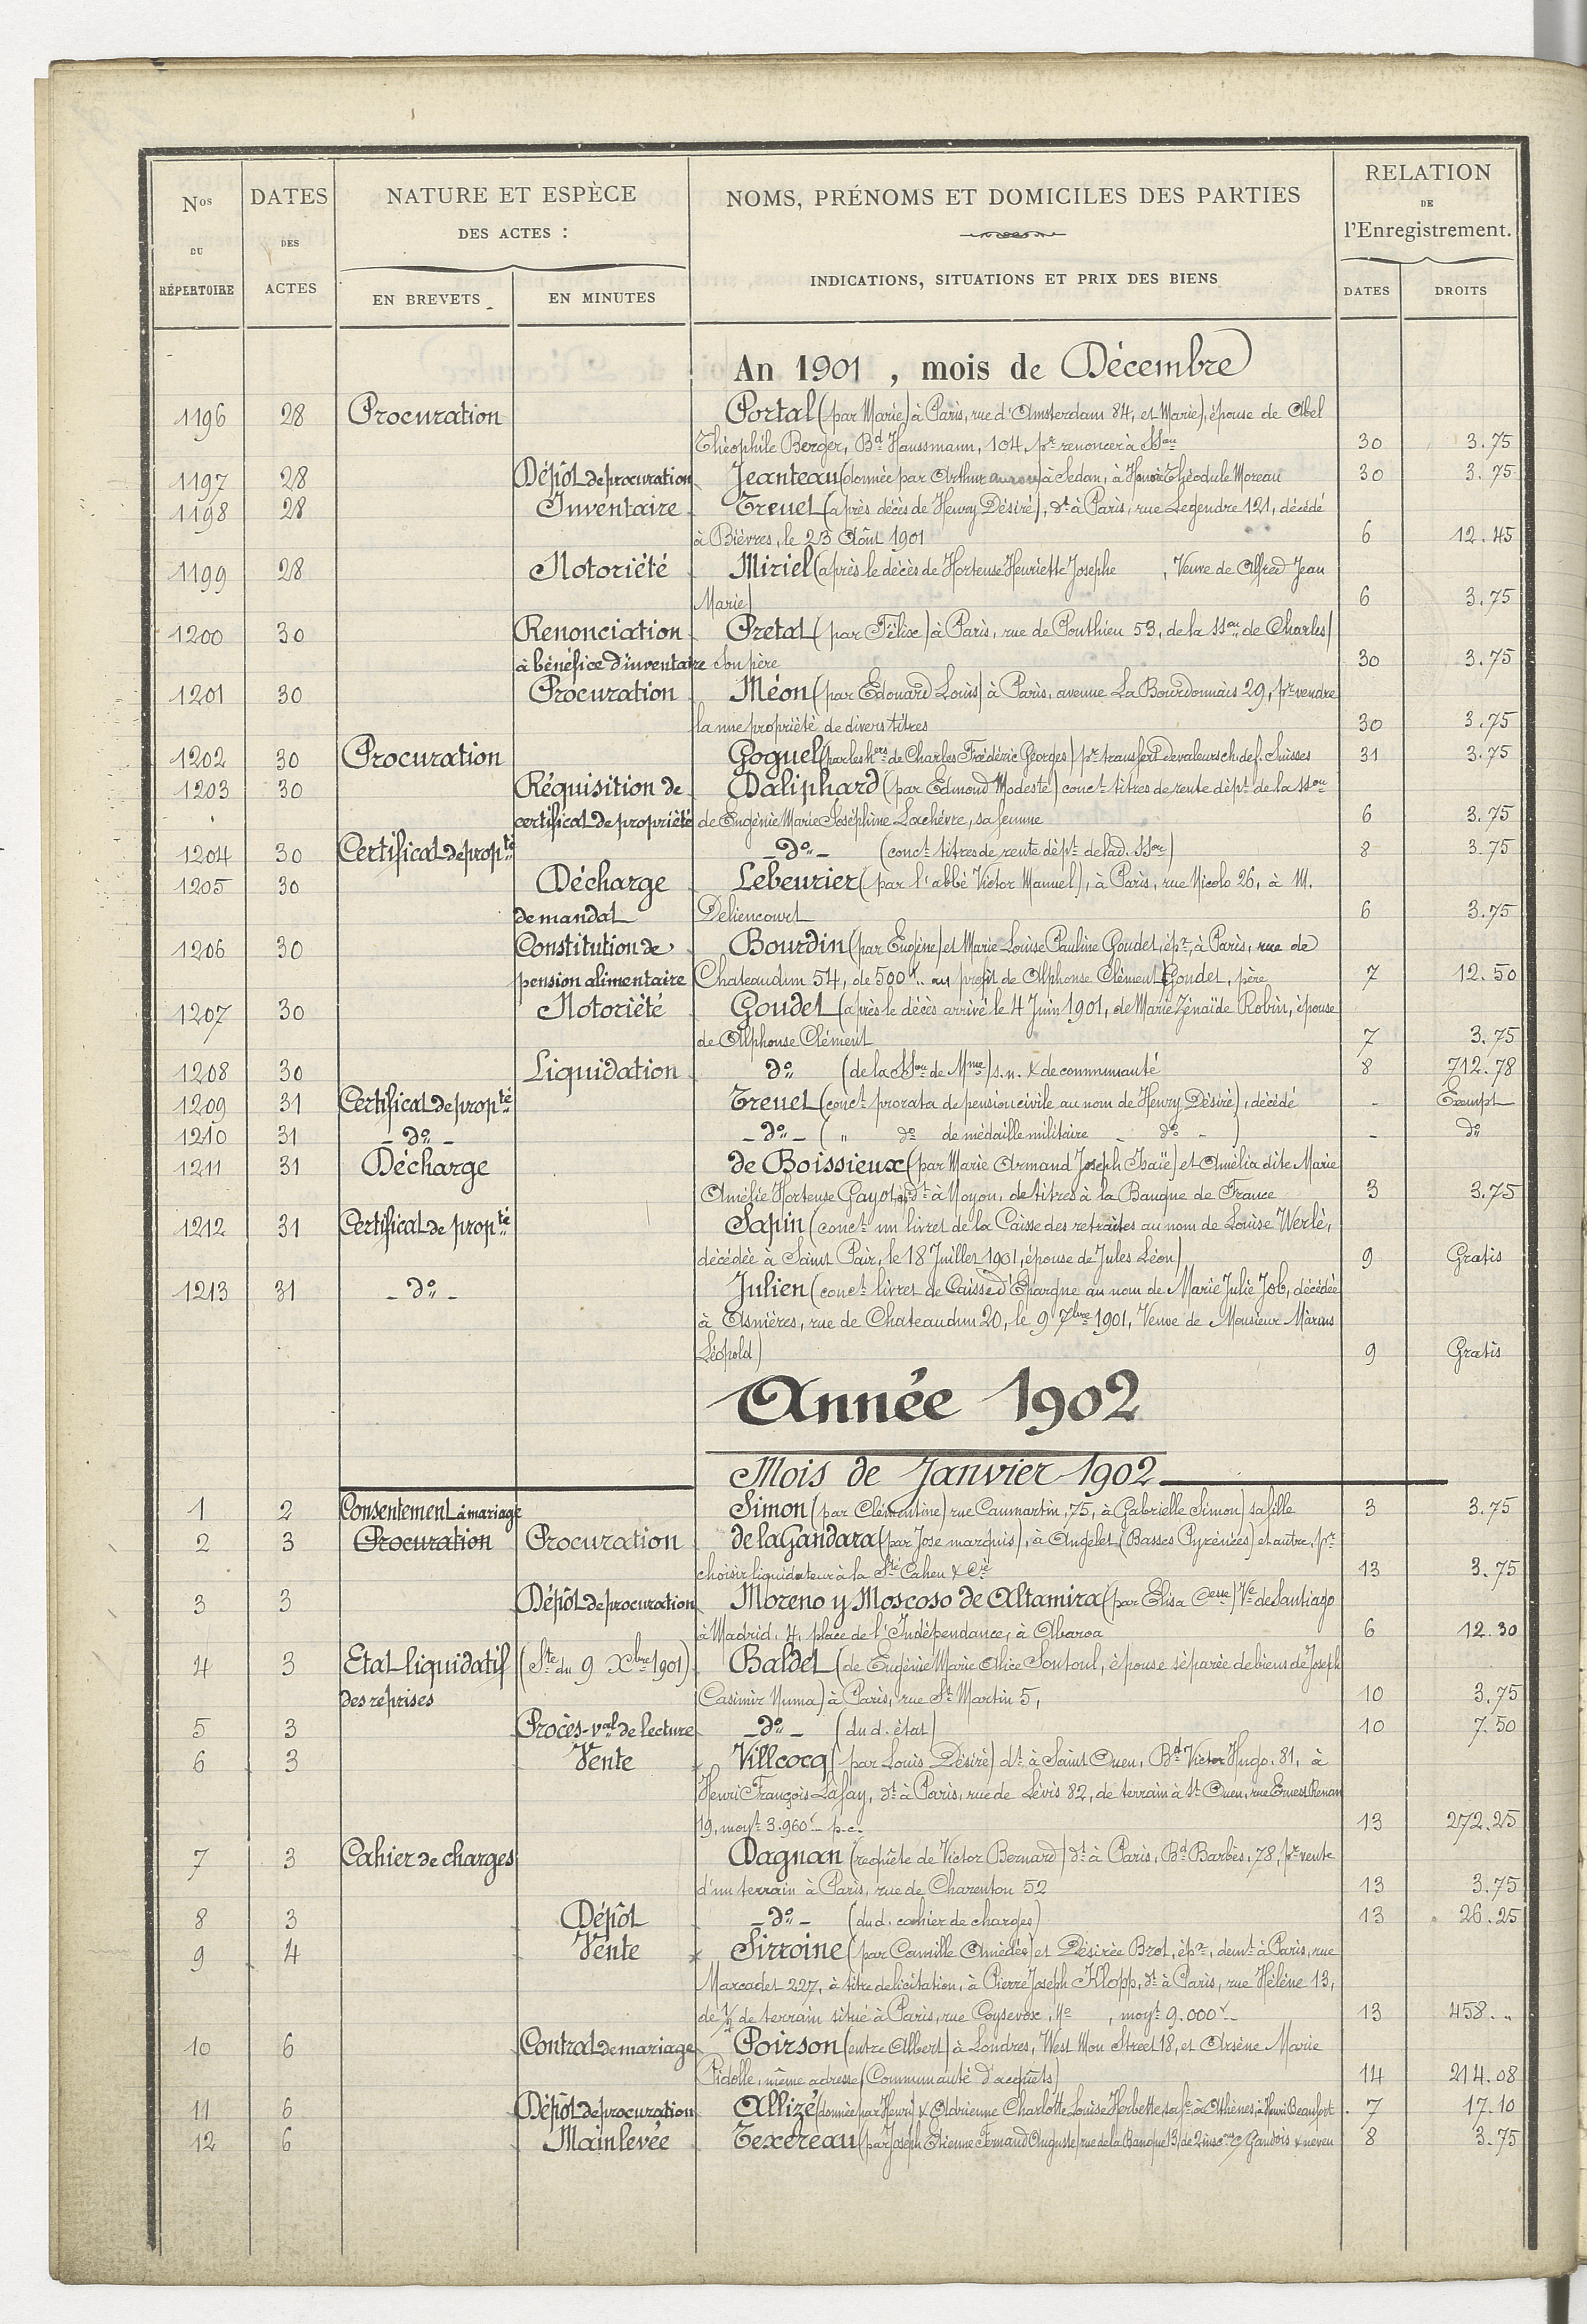 Nos DU RÉPERTOIRE
DATES DES ACTES
NATURE ET ESPÈCE DES ACTES :
EN BREVETS
EN MINUTES
NOMS, PRÉNOMS ET DOMICILES DES PARTIES
INDICATIONS, SITUATIONS ET PRIX DES BIENS
RELATION DE l'Enregistrement.
DATES
DROITS
An 1901, mois de Décembre
1196 28 Procuration Portal (par Marie) à Paris, rue d'Amsterdam 84, et Marie), épouse de Abel
Théophile Berger, Bd Haussmann, 104, pr renoncer à SSon 30 3.75
1197 28 Dépôt de procuration Jeanteau (donnée par Arthur à Sedan, à Honoré Théodule Moreau 30 3.75
1198 28 Inventaire Treuet (après décès de Henry Désiré), dt à Paris, rue Legendre 121, décédé
à Bièvres, le 23 Août 1901 6 12.45
1199 28 Notoriété Miriel (après le décès de Hortense Henriette Josephe , Veuve de Alfred Jean
Marie) 6 3.75
1200 30 Renonciation Pretat (par Félix) à Paris, rue de Ponthieu 53, de la SSon de Charles)
à bénéfice d'inventaire son père 30 3.75
1201 30 Procuration Méon (par Edouard Louis) à Paris, avenue La Bourdonnais 29, pr vendre
la nue propriété de divers titres 30 3.75
1202 30 Procuration Goguel (par les hers de Charles Frédéric Georges) pr transfert de valeurs ch. de f. Suisses 31 3.75
1203 30 Réquisition de Daliphard (par Edmond Modeste) conct titres de rente dépt de la SSon
certificat de propriété de Eugénie Marie Joséphine Lachèvre, sa femme 6 3.75
1204 30 Certificat de propté - do - (conct titres de rente dépt de lad. SSon) 8 3.75
1205 30 Décharge Lebeurier (par l'abbé Victor Manuel), à Paris, rue Nicolo 26, à M.
de mandat Deliencourt 6 3.75
1206 30 Constitution de Bourdin (par Eugène) et Marie Louise Pauline Goudet, épx, à Paris, rue de
pension alimentaire Chateaudun 54, de 500f. au profit de Alphonse Clément Goudet, père 7 12.50
1207 30 Notoriété Goudet (après le décès arrivé le 4 Juin 1901, de Marie Zénaïde Robin, épouse
de Alphonse Clément 7 3.75
1208 30 Liquidation do (de la SSon de Mme) s.n. & de communauté 8 712.78
1209 31 Certificat de propté Treuet (conct prorata de pension civile au nom de Henry Désiré), décédé - Exempt
1210 31 - do - - do - ( " do de médaille militaire - do - ) - do
1211 31 Décharge de Boissieux (par Marie Armand Joseph Isaïe) et Amélia dite Marie
Amélie Hortense Gayot, dt à Noyon, de titres à la Banque de France 3 3.75
1212 31 Certificat de propté Sapin (conct un livret de la Caisse des retraites au nom de Louise Werlé,
décédée à Saint Pair, le 18 Juillet 1901, épouse de Jules Léon) 9 Gratis
1213 31 - do - Julien (conct livret de Caisse d'Epargne au nom de Marie Julie Job, décédée
à Asnières, rue de Chateaudun 20, le 9 7bre 1901, Veuve de Monsieur Marius
Léopold) 9 Gratis
Année 1902
Mois de Janvier 1902
1 2 Consentement à mariage Simon (par Clémentine) rue Caumartin, 75, à Gabrielle Simon) sa fille 3 3.75
2 3 Procuration Procuration de la Gandara (par Jose marquis), à Anglet (Basses Pyrénées) et autre, pr
choisir liquidateur à la Sté Cahen & Cie 13 3.75
3 3 Dépôt de procuration Moreno y Moscoso de Altamira (par Elisa Cesse) Ve de Santiago
à Madrid, 4, place de l'Indépendance, à Abaroa 6 12.30
4 3 Etat liquidatif (Ste du 9 Xbre 1901) Baldet (de Eugénie Marie Alice Sontoul, épouse séparée de biens de Joseph
des reprises Casimir Numa) à Paris, rue St Martin 5, 10 3.75
5 3 Procès-val de lecture - do - (du d. état) 10 7.50
6 3 Vente Villcocq (par Louis Désiré) dt à Saint Ouen, Bd Victor Hugo, 81, à
Henri François Lafay, dt à Paris, rue de Lévis 82, de terrain à St Ouen, rue Ernest Renan
19, moyt 3.960f p.c. 13 272.25
7 3 Cahier de charges Dagnan (requête de Victor Bernard) dt à Paris, Bd Barbès, 78, pr vente
d'un terrain à Paris, rue de Charenton 52 13 3.75
8 3 Dépôt - do - (du d. cahier de charges) 13 26.25
9 4 Vente Sirroine (par Camille Amédée) et Désirée Brot, épx, demt à Paris, rue
Marcadet 227, à titre de licitation, à Pierre Joseph Klopp, dt à Paris, rue Hélène 13,
de 1/2 de terrain situé à Paris, rue Coysevox, No , moyt 9.000f 13 458. "
10 6 Contrat de mariage Poirson (entre Albert) à Londres, West Mou Street 18, et Arsène Marie
Pidolle, même adresse (Communauté d'acquêts) 14 214.08
11 6 Dépôt de procuration Allizé (donnée par Henri) & Adrienne Charlotte Louise Herbette sa fe à Athènes, à Henri Beaufort 7 17.10
12 6 Mainlevée Texereau (par Joseph Etienne Fernand Auguste) rue de la Banque 13, de 2 Gaudois & neveu 8 3.75